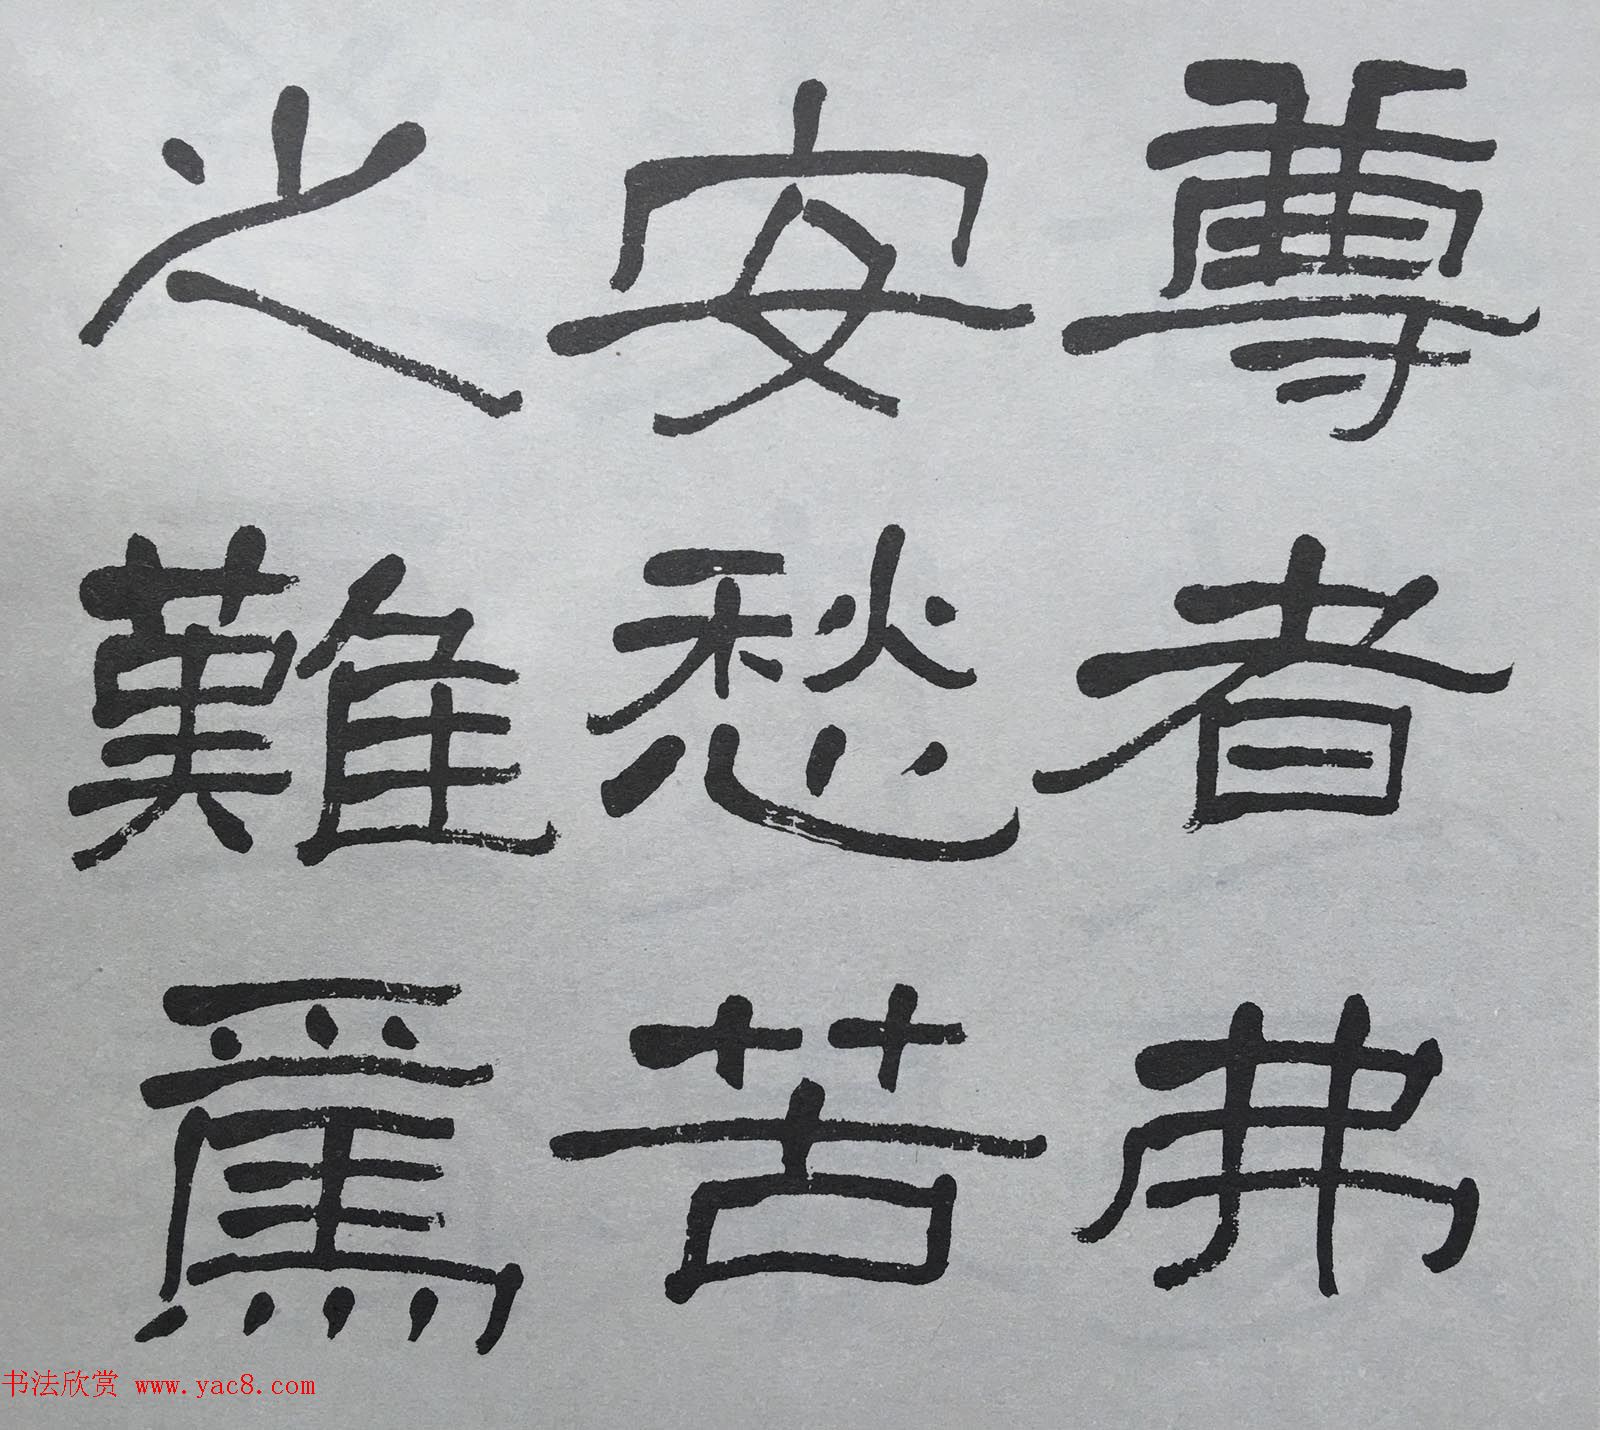 尊者弗
安愁苦
之難焉
书法欣赏 www.yac8.com